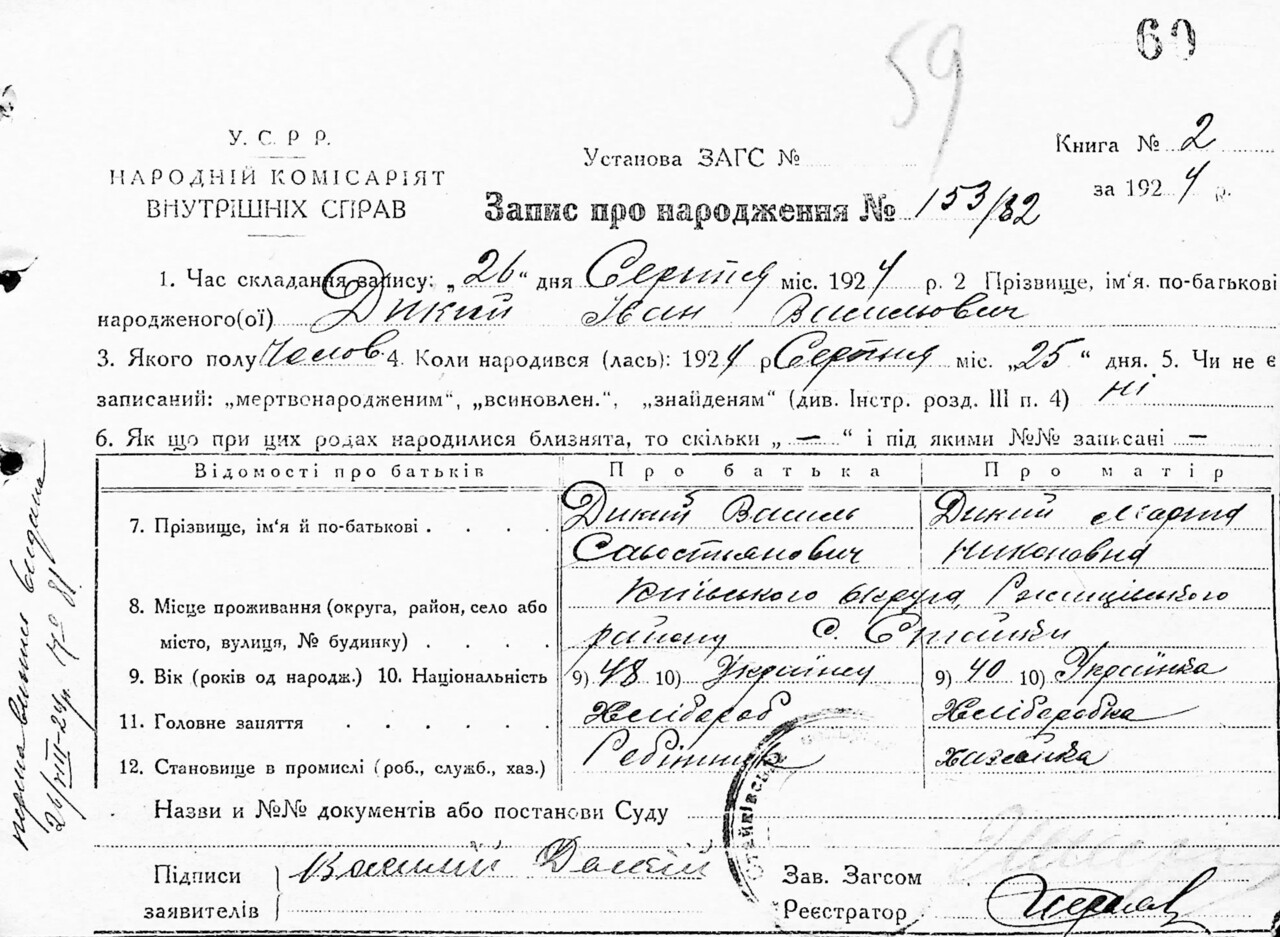 60
59
У. С. Р Р.
НАРОДНІЙ КОМІСАРІЯТ
ВНУТРІШНІХ СПРАВ
Установа ЗАГС №
Книга № 2
за 1924 р.
Запис про народження № 153/82
1. Час складання запису: „26“ дня Серпня міс. 1924 р. 2 Прізвище, ім'я. по-батькові
народженого(ої) Дикий Іван Васильович
3. Якого полу Чолов. 4. Коли народився (лась): 1924 р Серпня міс. „25“ дня. 5. Чи не є
записаний: „мертвонародженим“, „всиновлен.“, „знайденям“ (див. Інстр. розд. III п. 4) ні
6. Як що при цих родах народилися близнята, то скільки „ — “ і під якими №№ записані —
Відомості про батьків Про батька Про матір
7. Прізвище, ім'я й по-батькові Дикий Василь Дикий Марія
Савостиянович Никоновна
8. Місце проживання (округа, район, село або Київського округа, Ржищівського
місто, вулиця, № будинку) району С. Стайки
9. Вік (років од народж.) 10. Національність 9) 48 10) Українец 9) 40 10) Українка
11. Головне заняття Хлібороб Хліборобка
12. Становище в промислі (роб., служб., хаз.) хазяйка
Назви и №№ документів або постанови Суду
СТАЙКІВСЬК
Підписи Василий
заявителів
Зав. Загсом
Реєстратор
випись видана
26/VIII-24 р.